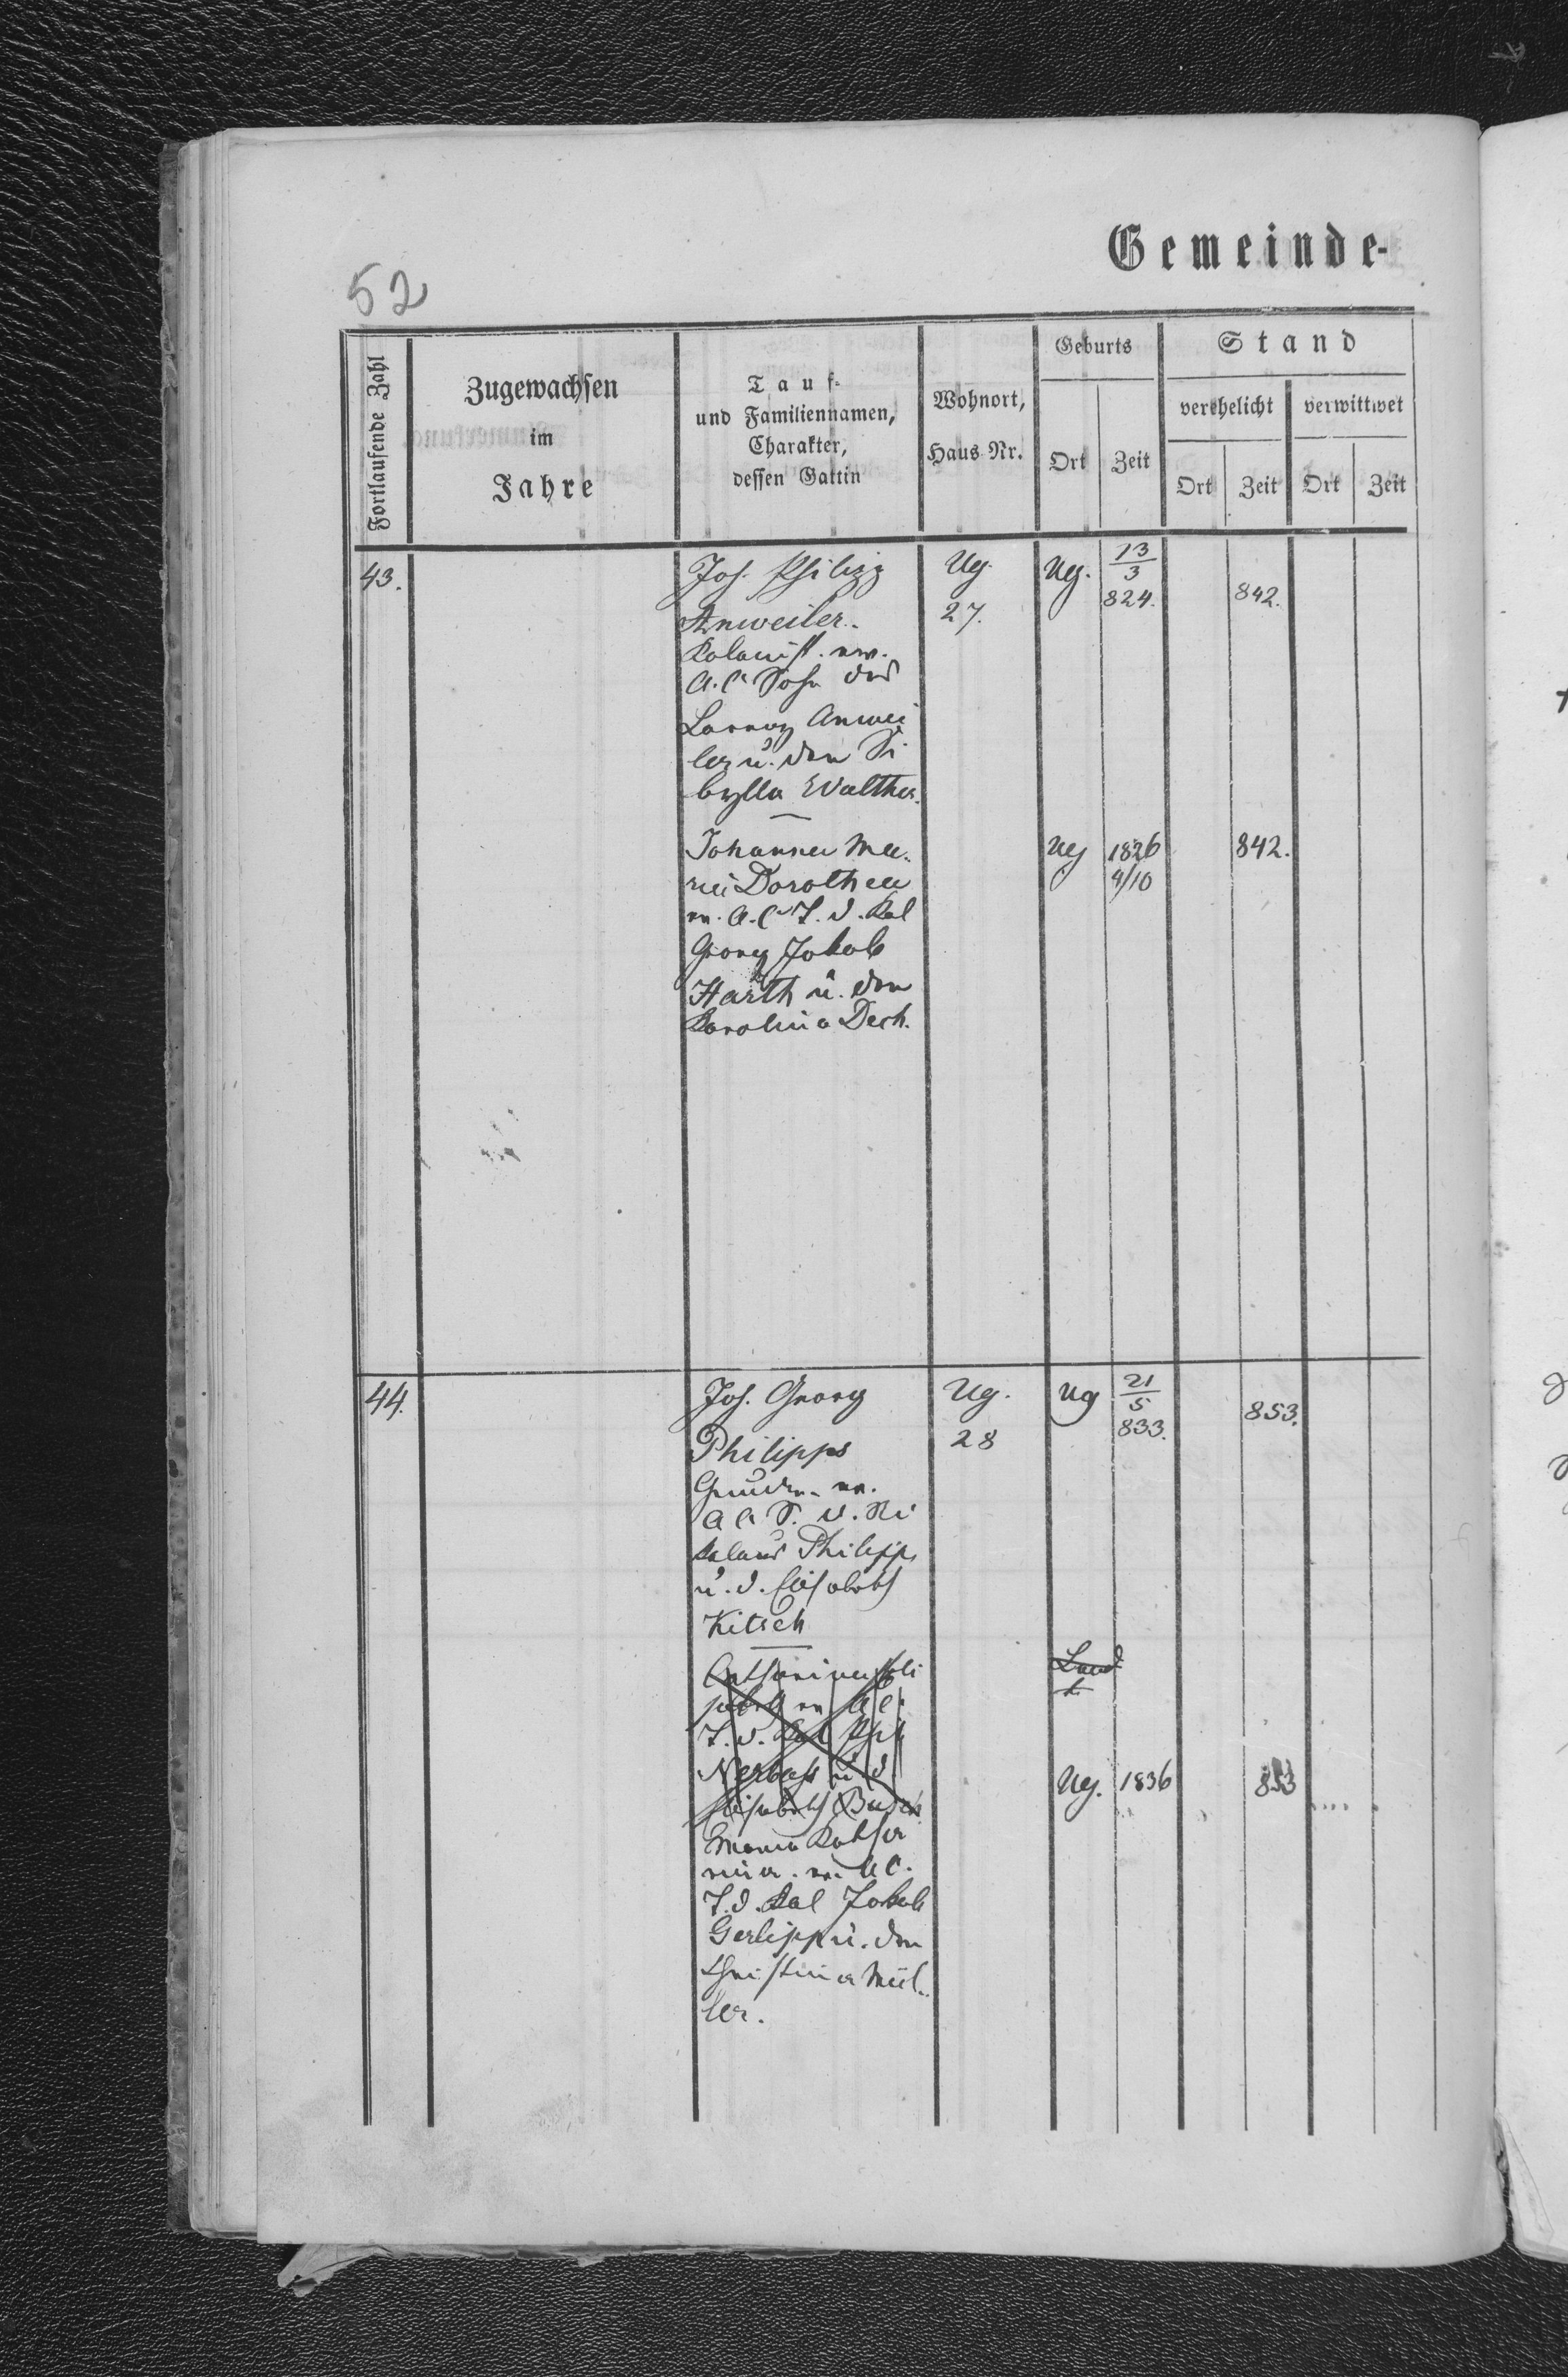 52
Gemeinde-
Fortlaufende Zahl
Zugewachsen
im
Jahre
Tauf-
und Familiennamen,
Charakter,
dessen Gattin
Wohnort,
Haus Nr.
Geburts
Ort
Zeit
Stand
verehelicht
Ort
Zeit
verwittwet
Ort
Zeit
43.
Joh. Philipp
Anweiler.
Kolonist. ev.
A.C. Sohn des
Lorenz Anwei
ler u. der Si
bylla Walther.
Ug.
27.
Ug.
13/3
824.
842.
Johanna Ma-
ria Dorothea
ev. A.C. T. d. Kol
Georg Jakob
Harth u. der
Karolina Dech.
Ug
1826
4/10
842.
44.
Joh. Georg
Philipps
ev.
A C S. d. Ni
kolaus Philipps
u. d. Elisabeth
Kitsch
Ug.
28
Ug
21/5
833.
853.
Catharina Eli
sabeth ev AC.
T. d. Kol
u d
Elisabeth Busch
Maria Katha
rina. ev. AC.
T. d. Kol Jakob
Gerlipp u. der
Christina Mül-
ler.
Ug.
1836
853